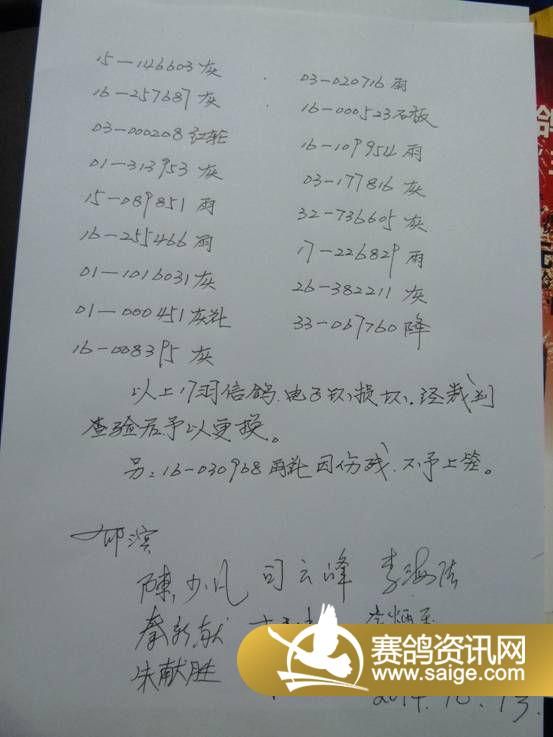 15-146603灰
16-257687灰
03-000208红轮
01-313953灰
15-089851雨
16-255466雨
01-1016031灰
01-000451灰花
16-008395灰
03-020716雨
16-000523石板
16-109954雨
03-177816灰
32-736605灰
17-226829雨
26-382211灰
33-067760降
以上17羽信鸽,电子环损坏.经裁判
查验后予以更换。
另:16-030968雨花因伤残,不予上笼。
邝滨
陳少凡 司云峰 李海
秦新献
朱献胜
2014.10.13
赛鸽资讯网
www.saige.com